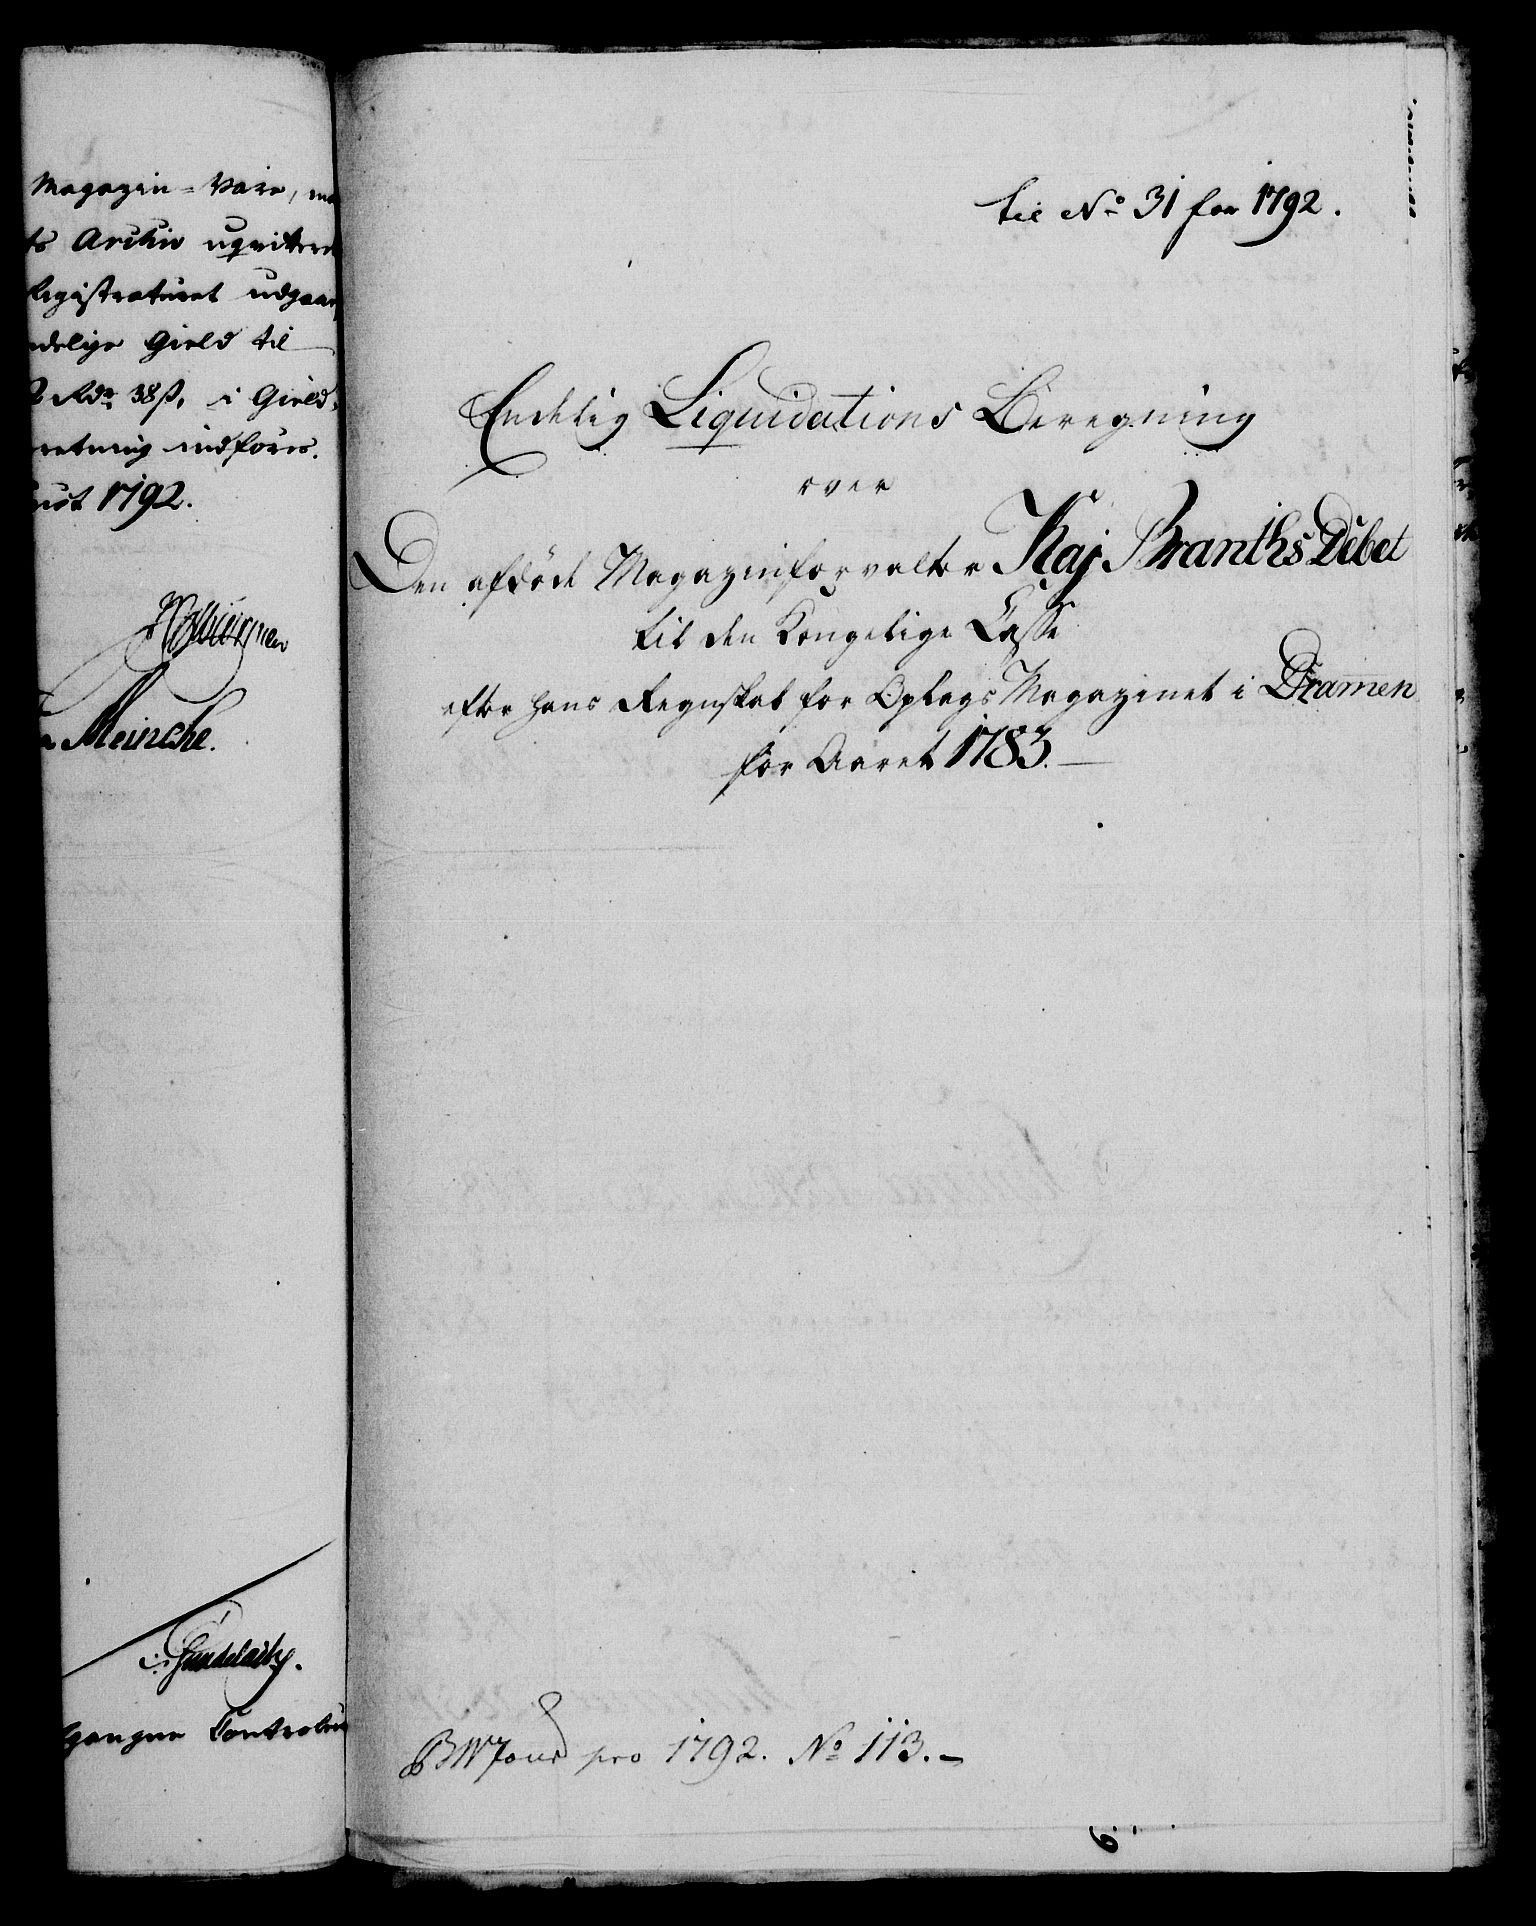 Magazin-Vare,
Archiv uqvitere
Registraturet udgaar
Gield til
Rdr 38 ß, i Gield
indføres.
1792.
Meincke.
Controleur
til No 31 for 1792.
Endelig Liquidations Beregning
over
Den afdöde Magazinforvalter Kaj Branths Debet
til den Kongelige Casse
efter hans Regnskab for Oplags Magazinet i Dramen
for Aaret 1783.
pro 1792. No 113.